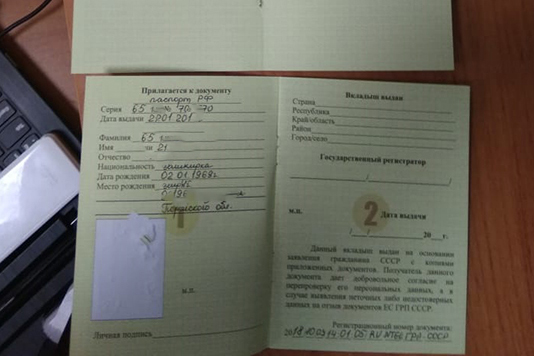 Прилагается к документу
паспорт РФ
Серия 65 № 70 70
Дата выдачи 29.01.201
Фамилия 65
Имя 21
Отчество
Национальность землянка
Дата рождения 02.01.1968г.
Место рождения
с. 196
обл.
1
м.п.
Личная подпись
Вкладыш выдан
Страна
Республика
Край/область
Район
Город/село
Государственный регистратор
/ /
м.п. 2 Дата выдачи
/ / 20 г.
Данный вкладыш выдан на основании
заявления гражданина СССР с копиями
приложенных документов. Получатель данного
документа дает добровольное согласие на
перепроверку его персональных данных, а в
случае выявления неточных либо недостоверных
данных на отзыв документов ЕС ГРП СССР.
Регистрационный номер документа: